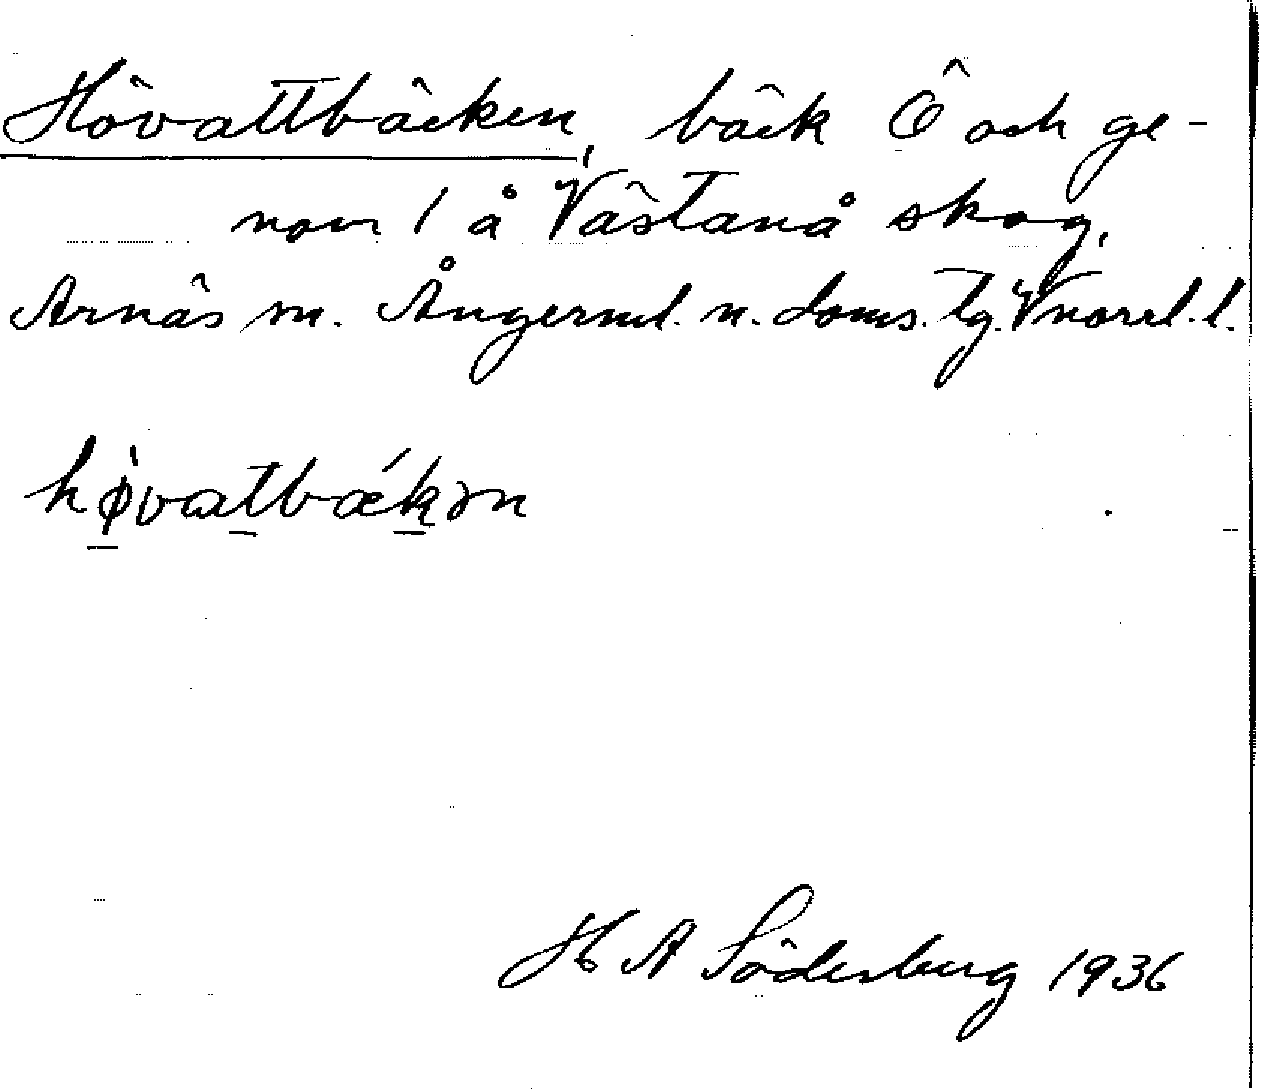 Hövattbäcken, bäck Ö och ge-
nom 1 å Västanå skog,
Arnäs sn. Ångerml. n. doms. tg. Vnorrl. l.
hø̀vatbǽkən
H A Söderberg 1936